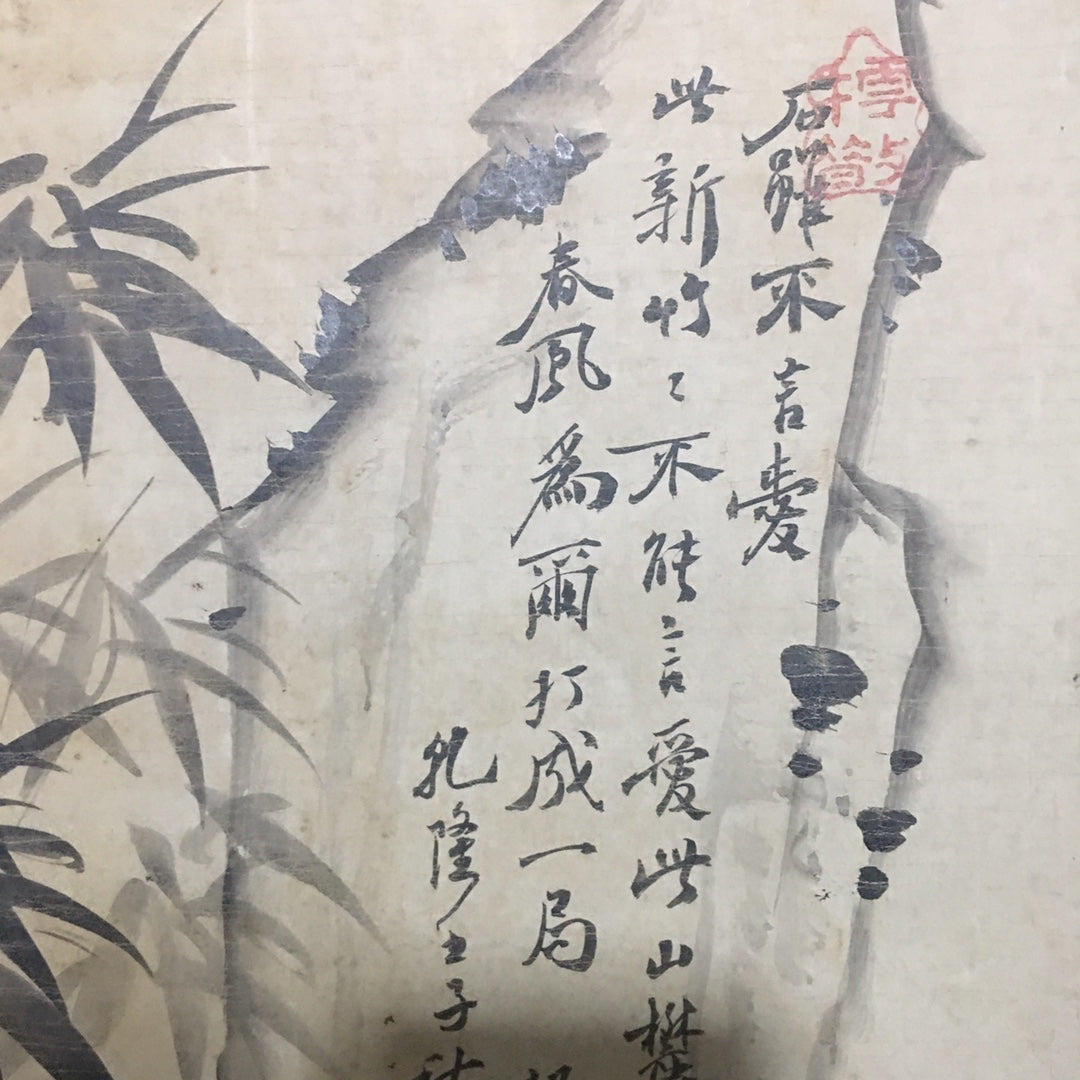 石雖不言愛
此新竹〻不能言愛此山
春風爲爾打成一局
乾隆壬子秋